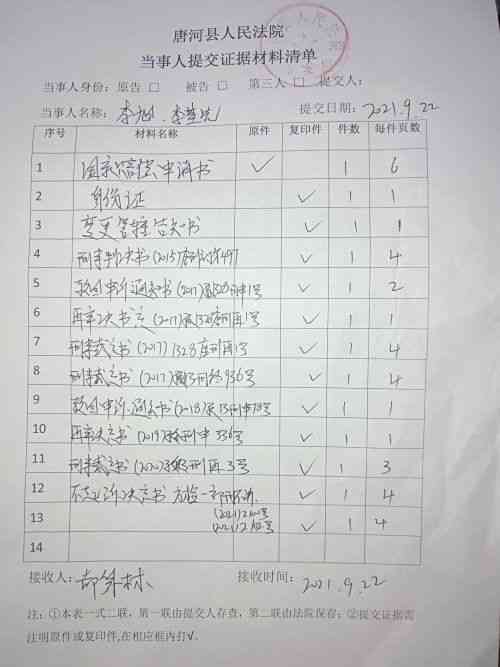 唐河县人民法院
当事人提交证据材料清单
当事人身份：原告 □ 被告 □ 第三人 □ 提交人：
当事人名称： 提交日期：2021.9.22
序号 材料名称 原件 复印件 件数 每件页数
1 国家赔偿申请书 ✓ 1 6
2 身份证 ✓ 1 1
3 变更管辖告知书 ✓ 1 1
4 刑事判决书(2015) 497 ✓ 1 4
5 驳回申诉通知书(2017) 1328 1号 ✓ 1 2
6 再审决定书 (2017) 1328 刑再1号 ✓ 1 1
7 刑事裁定书(2017)1328 刑再1号 ✓ 1 4
8 刑事裁定书(2017) 13刑终936号 ✓ 1 4
9 驳回申诉通知书(2018) 13刑申 号 ✓ 1 1
10 再审决定书(2019) 刑申 336号 ✓ 1 1
11 刑事裁定书(2020) 刑再3号 ✓ 1 3
12 不起诉决定书 ✓ 1 4
13 (2021) 号 ✓ 1 4
14
接收人： 接收时间：2021.9.22
注：①本表一式二联，第一联由提交人存查，第二联由法院保存；②提交证据需
注明原件或复印件,在相应框内打√.